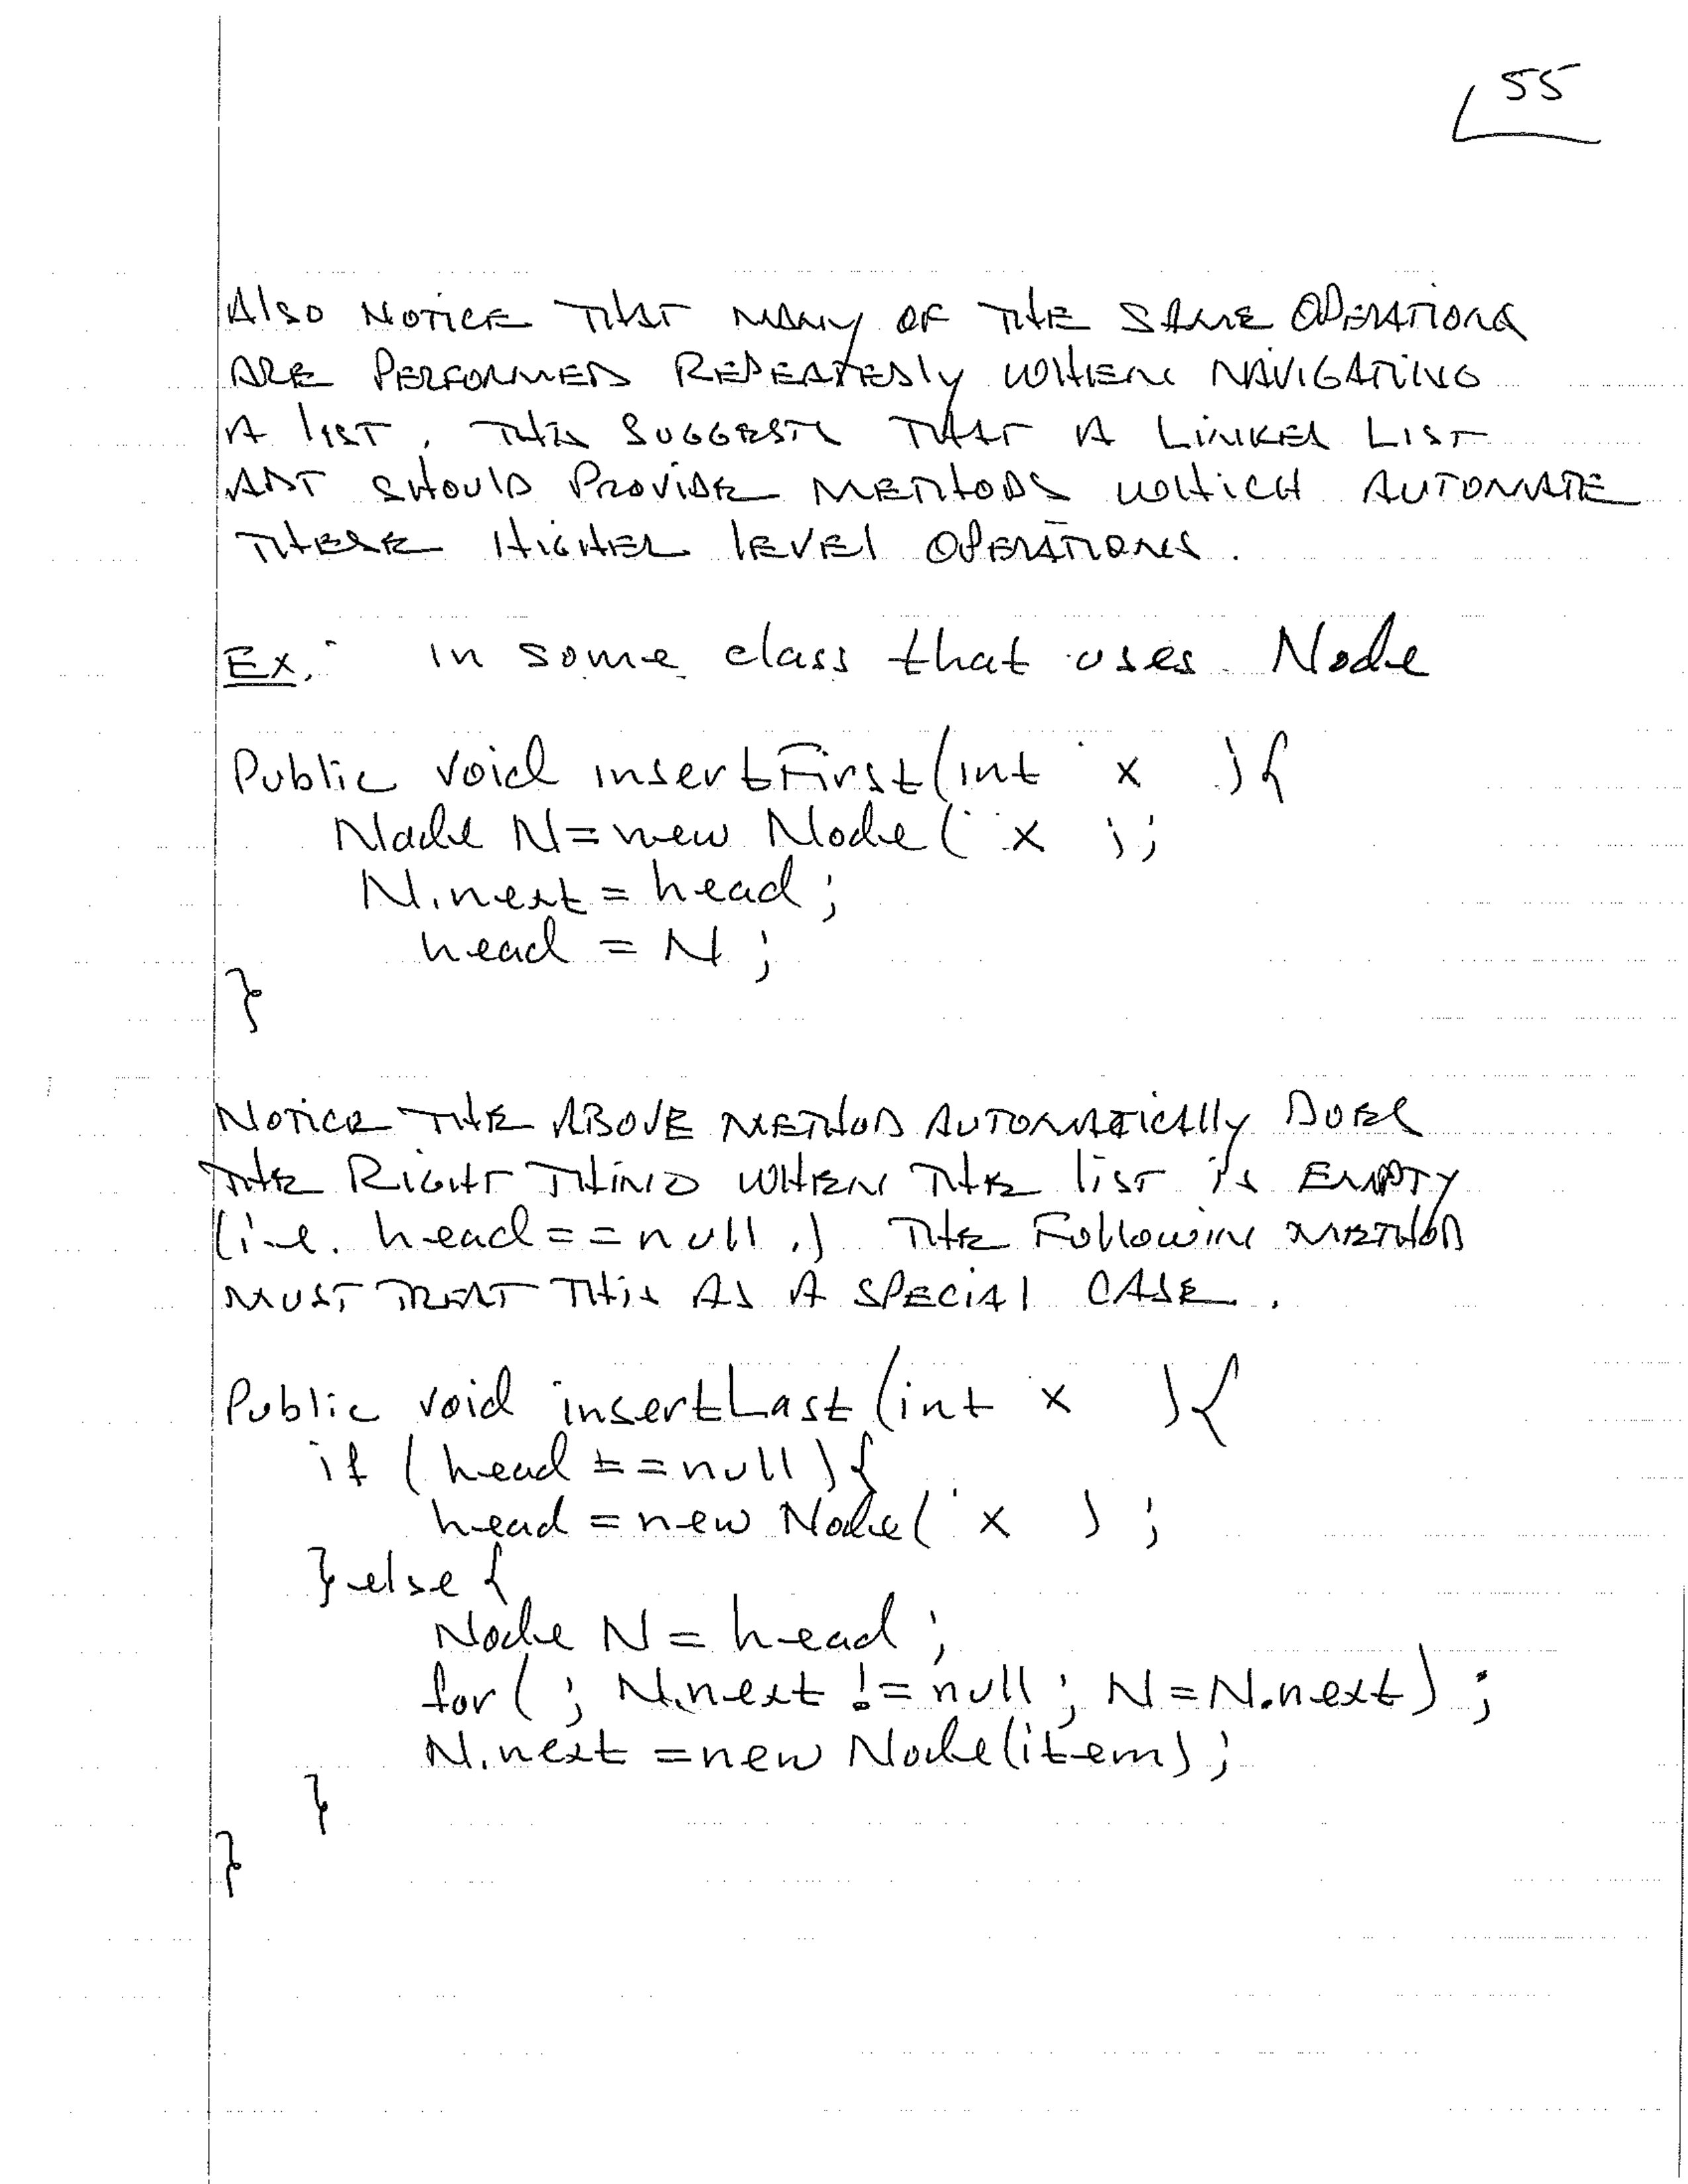 55
Also NOTICE THAT MANY OF THE SAME OPERATIONS
ARE PERFORMED REPEATEDLY WHEN NAVIGATING
A LIST. THIS SUGGESTS THAT A LINKED LIST
ADT SHOULD PROVIDE METHODS WHICH AUTOMATE
THESE HIGHER LEVEL OPERATIONS.
Ex: in some class that uses Node
Public void insertFirst(int x ){
Node N=new Node( x );
N.next = head;
head = N;
}
NOTICE THE ABOVE METHOD AUTOMATICALLY DOES
THE RIGHT THING WHEN THE LIST IS EMPTY
(i.e. head==null.) THE FOLLOWING METHOD
MUST TREAT THIS AS A SPECIAL CASE.
Public void insertLast(int x ){
if (head ==null){
head = new Node( x );
}else{
Node N = head;
for( ; N.next != null; N=N.next) ;
N.next =new Node(item);
}
}